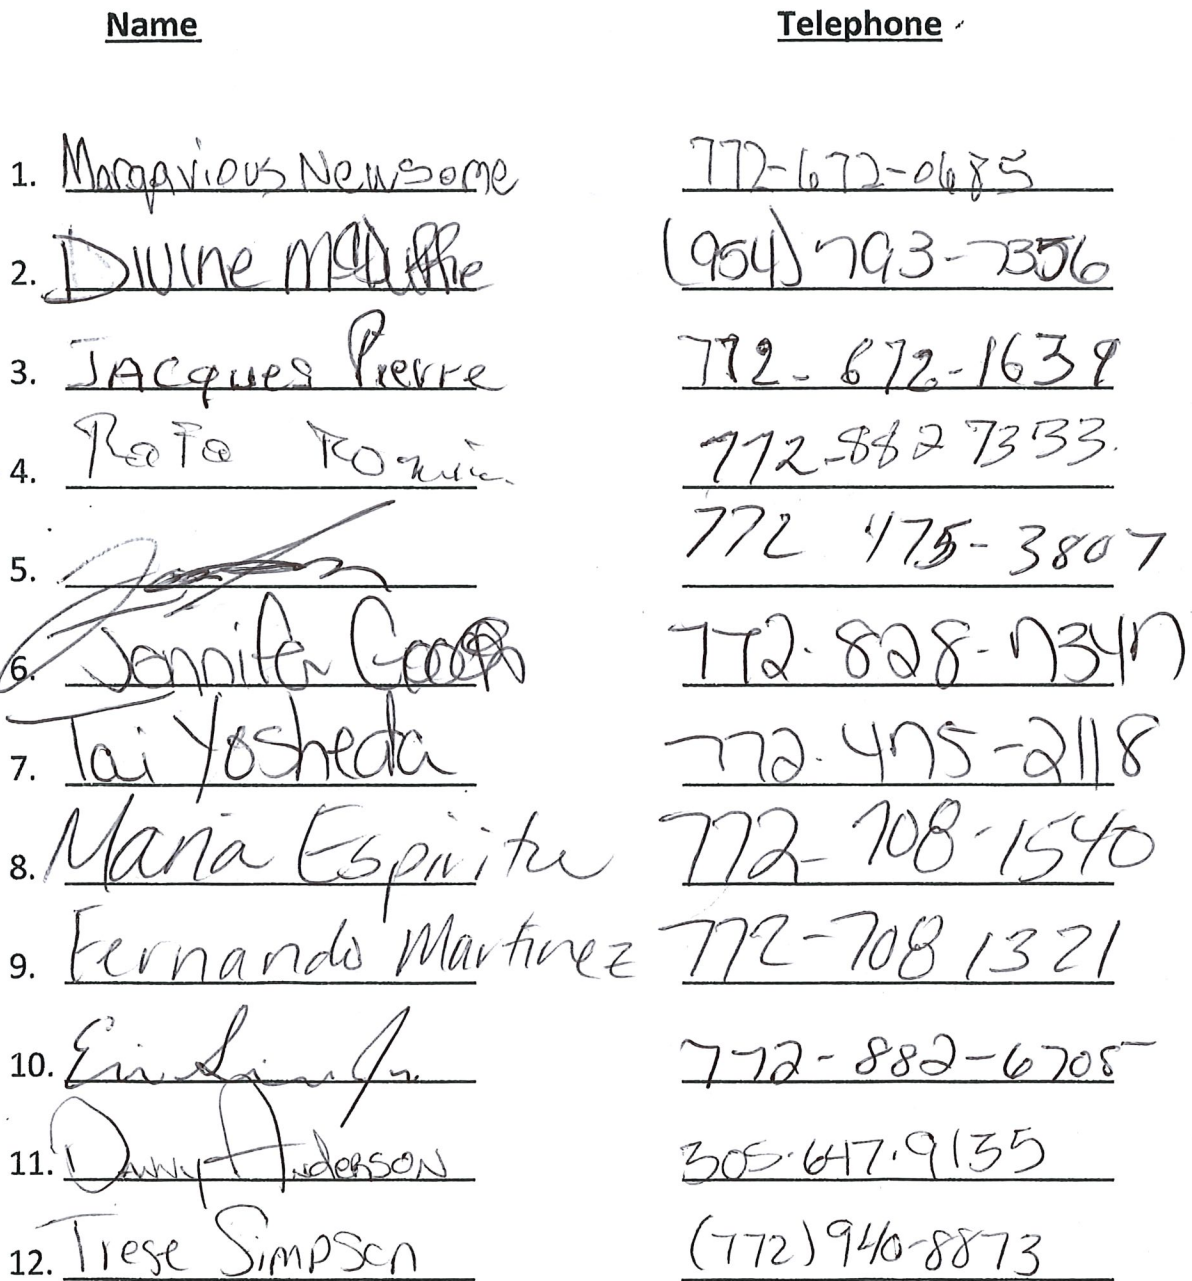 Name Telephone
1. Margavious Newsome 772-672-0685
2. Divine McDuffie (954) 793-7356
3. JAcques Pierre 772-672-1639
4. 772-882 7353
5. 772 475-3807
6. Jennifer 772-828-7347
7. Tai Yosheda 772-475-2118
8. Maria Espiritu 772-708-1540
9. Fernando Martinez 772-708 1321
10. 772-882-6705
11. Danny Anderson 305.647.9135
12. Trese Simpson (772) 940-8873